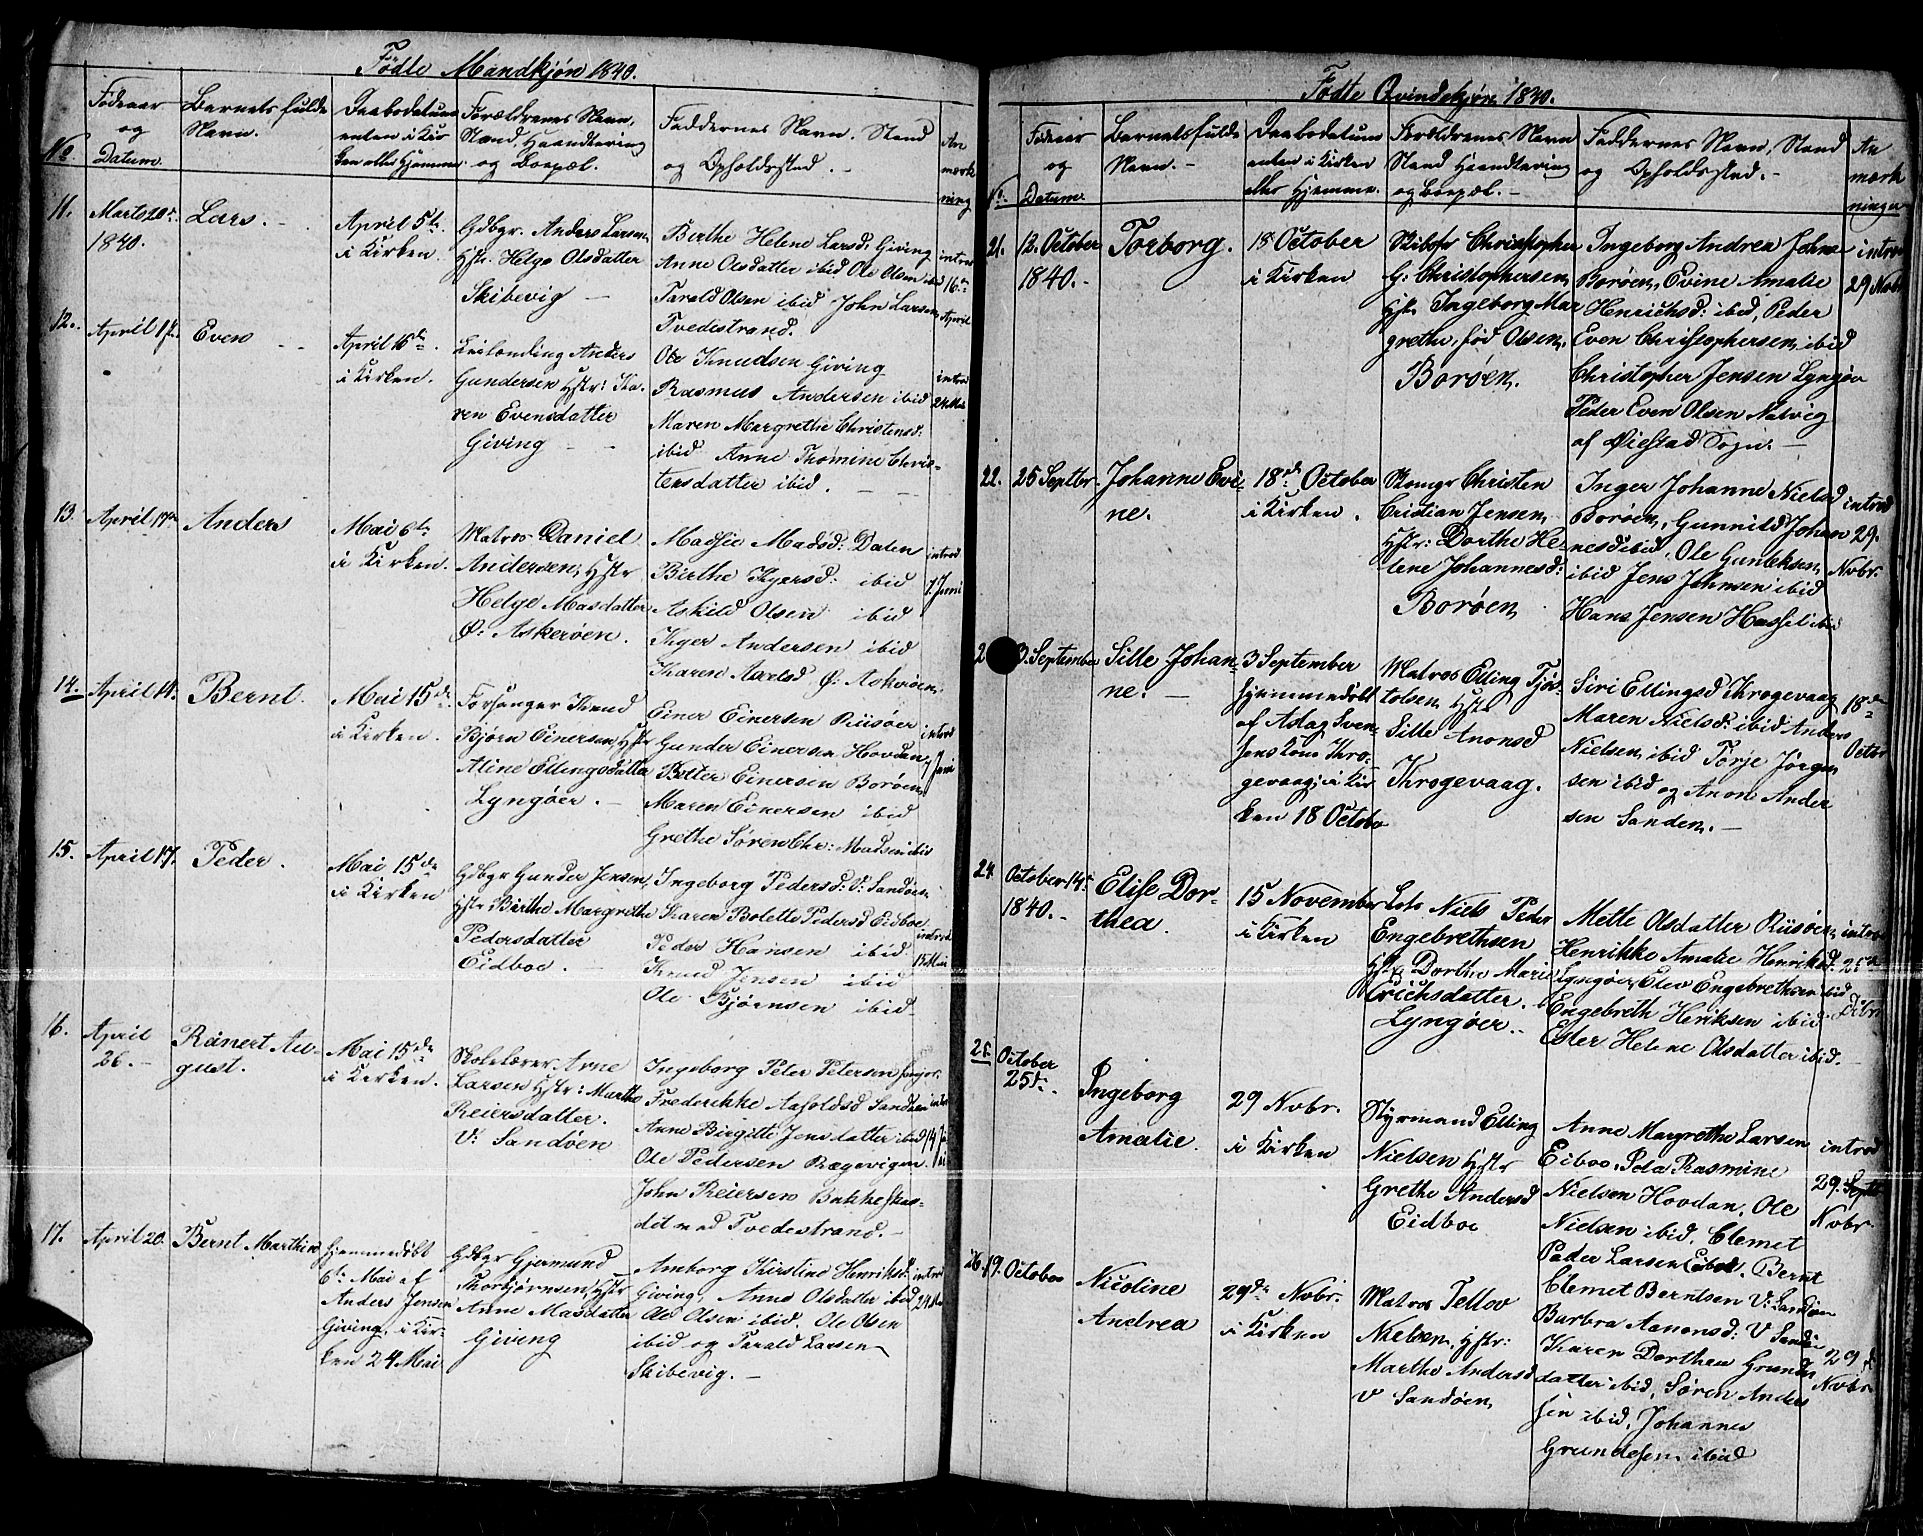 Fødte Mandkjøn 1840.
No
Fødeaar
og
Datum.
Barnets fulde
Navn.
Daabsdatum
enten i Kir
ken eller Hjemme
Forældrenes Navn,
Stand, Haandtering
og Boepæl.
Faddernes Navn, Stand
og Opholdssted.
An
mærk
ning
11.
Marts 20de
1840.
Lars.
April 5te
i Kirken.
Gdbgr. Anders Larsen
Hstr. Helge Olsdatter
Skibevig
Birthe Helene Larsd. Giving
Anne Olsdatter ibid Ole Olsen ibid
Tarald Olsen ibid John Larsen
Tvedestrand.
introd
16de
April
12.
April 17.
Even
April 16de
i Kirken.
Leilending Anders
Gundersen Hstr: Ka-
ren Evensdatter
Giving
Ole Knudsen Giving
Rasmus Andersen ibid
Maren Margrethe Christensd:
ibid Anne Thomine Chris-
tensdatter ibid.
introd
24 Mai
13.
April 17de
Anders
Mai 6te
i Kirken.
Matros Daniel
Andersen, Hstr
Helge Masdatter
Ø: Askerøen.
Madsie Madsd: Dalen
Birthe Kgersd: ibid
Askild Olsen ibid
Kger Andersen ibid
Karen Aarlsd Ø: Askerøen
introd
7 Juni
14.
April 14.
Bernt
Mai 15de
i Kirken.
Forsanger Knud
Bjørn Einersen, Hstr
Aline Ellingsdatter
Lyngøer.
Einer Einersen Riisøer
Gunder Einersen Hovdan
Peter Einersen Borøen
Maren Einersen ibid
Grethe Søren Chr: Madsen ibid
introd
7 Juni
15.
April 17.
Peder.
Mai 15de
i Kirken
Gdbgr Gunder Jensen,
Hstr Birthe Margrethe
Pedersdatter
Eidboe.
Ingeborg Pedersd: V: Sandøen
Karen Bolette Pedersd Eidboe
Peder Hansen ibid
Knud Jensen ibid
Ole Bjørnsen ibid
introd
15 Mai
16.
April
26.
Reinert Au-
gust.
Mai 15de
i Kirken.
Skolelærer Arne
Larsen Hstr: Marthe
Reiersdatter.
V: Sandøen
Ingeborg Peter Petersen senior
Frederikke Aasoldsd Sandøen
Anne Birgitte Jensdatter ibid
Ole Pedersen Rægevigen.
John Reiersen Bakke
dit ved Tvedestrand.
introd
14 Ju
ni
17.
April 20.
Bernt Marthin
Hjemmedøbt
6te Mai af
Anders Jensen
Giving, i Kir-
ken 24 Mai
Gdbgr Gjermund
Thorbjørnsen, Hstr
Anne Masdatter
Giving
Amborg Kirstine Henriksd:
Giving, Anne Olsdatter ibid
Ole Olsen ibid. Ole Olsen
ibid og Tarald Larsen
Skibevig.
introd
24 Mai
Fødte Qvindekjøn 1840.
No
Fødeaar
og
Datum.
Barnets fulde
Navn.
Daabsdatum
enten i Kirken
eller Hjemme.
Forældrenes Navn
Stand Haandtering
og Boepæl.
Faddernes Navn, Stand
og Opholdssted.
An
mærk
ninger
21.
12. October
1840.
Torborg.
18 October
i Kirken
Skibsfr Christopher
G: Christophersen,
Hstr Ingeborg Mar
grethe, fød Olsen,
Borøen.
Ingeborg Andrea Johns
Borøen, Evine Amalie
Henrichsd: ibid, Peder
Even Christophersen, ibid
Christopher Jensen Lyngør
Peder Even Olsen Natvig
af Øiestad Sogn.
introd
29 Nobr
22.
25 Septbr.
Johanne Evi-
ne.
18de October
i Kirken.
Skomgr Christen
Cristian Jensen,
Hstr: Dorthe He-
lene Johannesd:
Borøen
Inger Johanne Nielsd
Borøen, Gunnild Johan
nesd ibid, Ole Gunleksen,
ibid Jens Johnsen ibid
Hans Jensen Hassel ibid
introd
29.
Nobr.
2
3. September
Sille Johan-
ne.
3 September
hjemmedøbt
af Aslag Sven
sens kone Kro-
gevaag, i Kir
ken 18 Octobr
Matros Elling Tjøs-
tolsen, Hstr
Sille Anonsd
Krogevaag.
Siri Ellingsd Krogevaag
Maren Nielsd: ibid Anders
Nielsen, ibid Torje Jørgen
sen ibid og Anon Ander
sen Sanden.
18de
Octbr
24.
October 14.
1840.
Elise Dor-
thea.
15 November
i Kirken
Lots Niels Peder
Engebrethsen
Hstr Dorthe Marie
Erichsdatter.
Lyngøer.
Mette Olsdatter Riisøen,
Henrikke Amalie Henriksd:
Lyngøer, Elev Engebrethsen ibid
Engebreth Heriksen ibid.
Ester Helene Olsdatter ibid.
introd
25de
Dcbr
25.
October
25de
Ingeborg
Amalie.
29 Nobr.
i Kirken
Styrmand Elling
Nielsen Hstr
Grethe Andersd
Eidboe
Anne Margrethe Larsen
Eiboe, Pola Rasmine
Nielsen Hovdan, Ole
Nielsen ibid, Clemet
Peder Larsen Eiboe, Bernt
introd
29. Septbr
Nobr
26.
19. October
Nicoline
Andrea
29de Nobr.
i Kirken
Matros Tellov
Nielsen, Hstr:
Marthe Andersd
V Sandøen,
Clemet Berntsen V: Sandøen
Barbra Aanonsd: V Sandø
Karen Dorthea Grunde
datter ibid, Søren Anders
sen ibid, Johannes
Grundesen ibid
29 de
Nobr